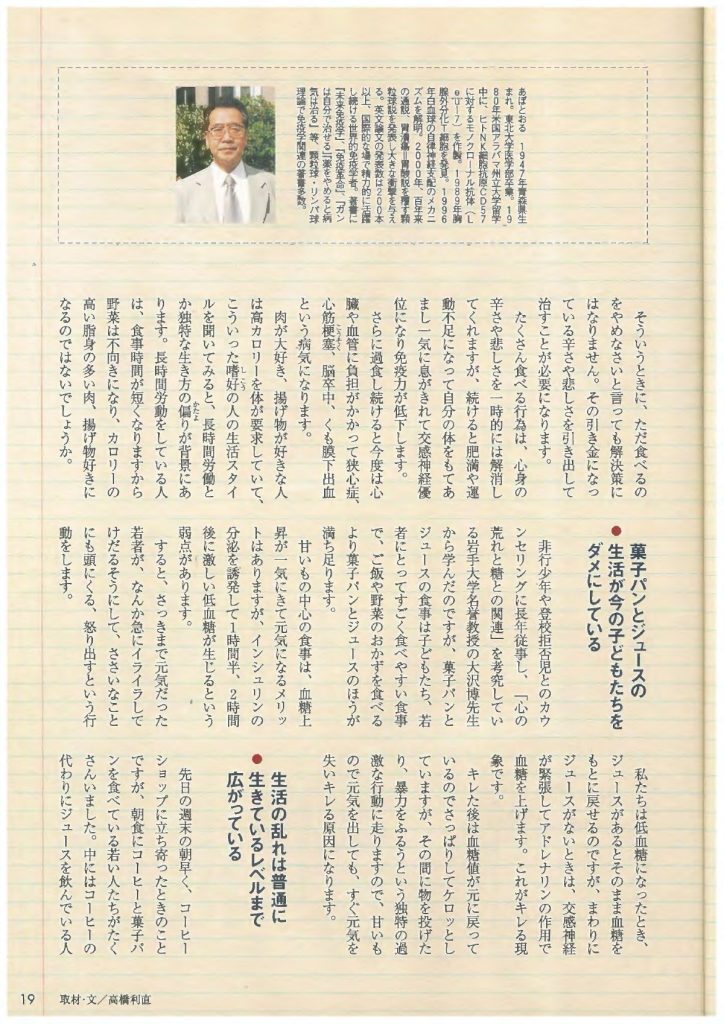 あぼとおる　1947年青森県生
まれ。東北大学医学部卒業。19
80年米国アラバマ州立大学留学
中に、ヒトNK細胞抗原CD57
に対するモノクローナル抗体（L
eu-7）を作製。1989年胸
腺外分化T細胞を発見。1996
年白血球の自律神経支配のメカニ
ズムを解明。2000年、百年来
の通説、胃潰瘍＝胃酸説を覆す顆
粒球説を発表し大きな衝撃を与え
る。英文論文の発表数は200本
以上、国際的な場で精力的に活躍
し続ける世界的免疫学者。著書に
『未来免疫学』、『免疫革命』、『ガン
は自分で治せる』『薬をやめると病
気は治る』等、顆粒球・リンパ球
理論で免疫学関連の著書多数。
そういうときに、ただ食べるの
をやめなさいと言っても解決策に
はなりません。その引き金になっ
ている辛さや悲しさを引き出して
治すことが必要になります。
たくさん食べる行為は、心身の
辛さや悲しさを一時的には解消し
てくれますが、続けると肥満や運
動不足になって自分の体をもてあ
まし一気に息がきれて交感神経優
位になり免疫力が低下します。
さらに過食し続けると今度は心
臓や血管に負担がかかって狭心症、
心筋梗塞、脳卒中、くも膜下出血
という病気になります。
肉が大好き、揚げ物が好きな人
は高カロリーを体が要求していて、
こういった嗜好の人の生活スタイ
ルを聞いてみると、長時間労働と
か独特な生き方の偏りが背景にあ
ります。長時間労働をしている人
は、食事時間が短くなりますから
野菜は不向きになり、カロリーの
高い脂身の多い肉、揚げ物好きに
なるのではないでしょうか。
● 菓子パンとジュースの
生活が今の子どもたちを
ダメにしている
非行少年や登校拒否児とのカウ
ンセリングに長年従事し、「心の
荒れと糖との関連」を考究してい
る岩手大学名誉教授の大沢博先生
から学んだのですが、菓子パンと
ジュースの食事は子どもたち、若
者にとってすごく食べやすい食事
で、ご飯や野菜のおかずを食べる
より菓子パンとジュースのほうが
満ち足ります。
甘いもの中心の食事は、血糖上
昇が一気にきて元気になるメリッ
トはありますが、インシュリンの
分泌を誘発して1時間半、2時間
後に激しい低血糖が生じるという
弱点があります。
すると、さっきまで元気だった
若者が、なんか急にイライラして
けだるそうにして、ささいなこと
にも頭にくる、怒り出すという行
動をします。
私たちは低血糖になったとき、
ジュースがあるとそのまま血糖を
もとに戻せるのですが、まわりに
ジュースがないときは、交感神経
が緊張してアドレナリンの作用で
血糖を上げます。これがキレる現
象です。
キレた後は血糖値が元に戻って
いるのでさっぱりしてケロッとし
ていますが、その間に物を投げた
り、暴力をふるうという独特の過
激な行動に走りますので、甘いも
ので元気を出しても、すぐ元気を
失いキレる原因になります。
● 生活の乱れは普通に
生きているレベルまで
広がっている
先日の週末の朝早く、コーヒー
ショップに立ち寄ったときのこと
ですが、朝食にコーヒーと菓子パ
ンを食べている若い人たちがたく
さんいました。中にはコーヒーの
代わりにジュースを飲んでいる人
19　取材・文／高橋利直